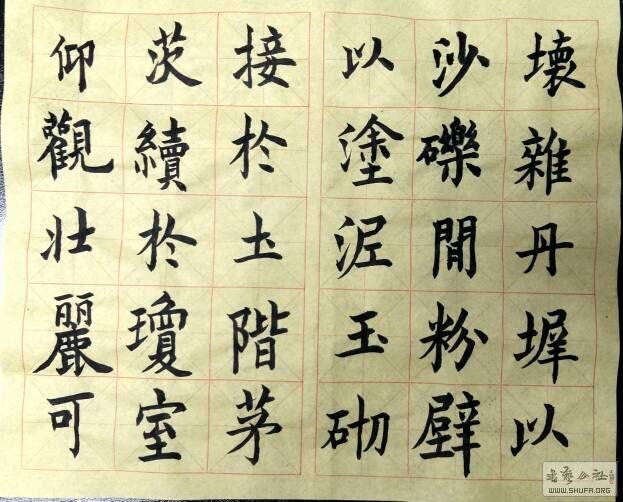 壞雜丹墀以
沙礫閒粉壁
以塗泥玉砌
接於土階茅
茨續於瓊室
仰觀壯麗可
书艺公社
WWW.SHUFA.ORG